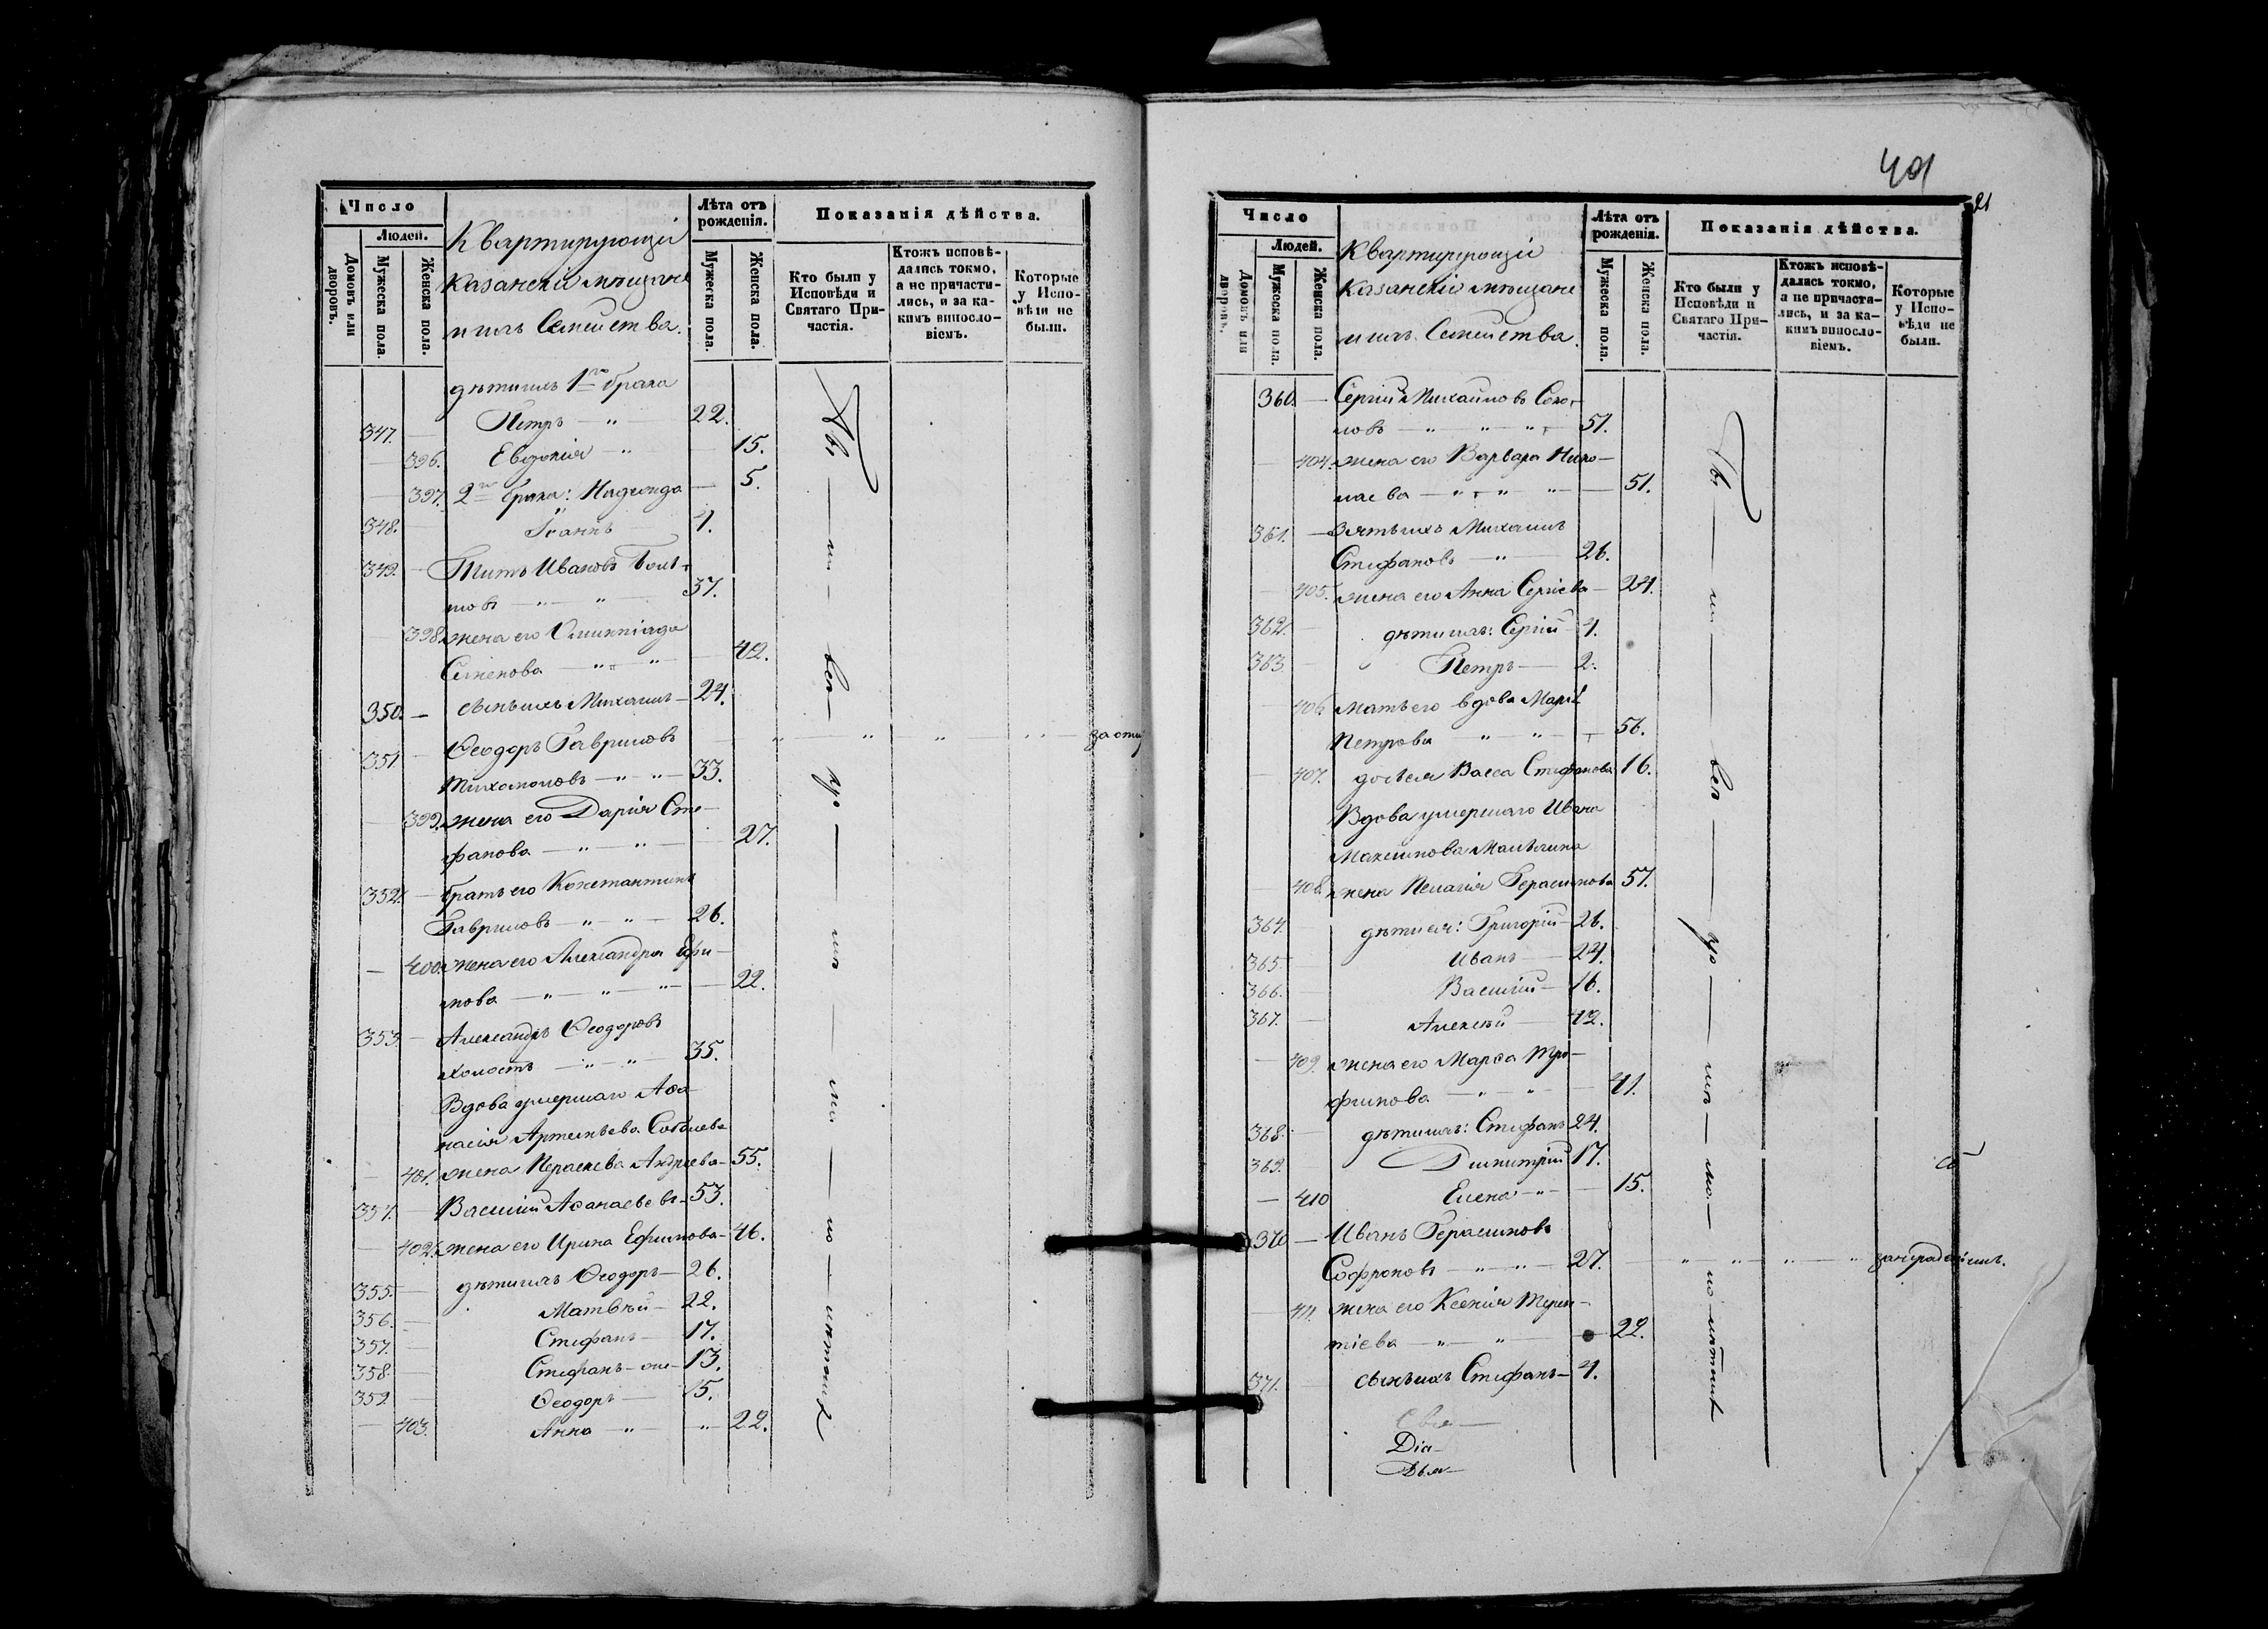 Число
Людей.
Домовъ или дворовъ.
Мужеска пола.
Женска пола.
Квартирующіи
казанскіе мѣщане
и ихъ Семейства.
Лѣта отъ рожденія.
Мужеска пола.
Женска пола.
Показанія дѣйства.
Кто были у Исповѣди и Святаго Причастія.
Ктожъ исповѣдались токмо, а не причастились, и за какимъ винословіемъ.
Которые у Исповѣди не были.
дѣти ихъ 1го брака
347. Петръ — " 22.
396. Евдокія — " 15.
397. 2го брака: Надежда — 5.
348. Іоаннъ 4.
349. Титъ Ивановъ
37.
398. жена его Олимпіада
Семенова — " — " 42.
350. — сынъ ихъ Михаилъ — 24.
351. Ѳеодоръ Гавриловъ
Тихомоловъ — " — " — 33.
399. жена его Дарія Сте-
фанова — " — " 27.
352. — братъ его Константинъ
Гавриловъ — " — " — 26.
400. жена его Александра Ефи-
мова — " — " — " — 22.
353. — Александръ Ѳеодоровъ
холостъ — " — " — 35.
Вдова умершаго Аѳа-
насія Артемьева
401. жена Параскева Андреева — 55.
354. Василій Аѳанасьевъ — 53.
402. жена его Ирина Ефимова — 46.
355. — дѣти ихъ Ѳеодоръ — 26.
356. — Матвѣй — 22.
357. — Стефанъ — 17.
358. — Стефанъ — 13.
359 — Ѳеодоръ — 5.
— 403. Анна — " — " — 22.
401
21
Число
Людей.
Домовъ или дворовъ.
Мужеска пола.
Женска пола.
Квартирующіи
казанскіе мѣщане
и ихъ Семейства.
Лѣта отъ рожденія.
Мужеска пола.
Женска пола.
Показанія дѣйства.
Кто были у Исповѣди и Святаго Причастія.
Ктожъ исповѣдались токмо, а не причастились, и за какимъ винословіемъ.
Которые у Исповѣди не были.
360. — Сергій Михайловъ Соко-
ловъ — " — " — " 51.
404. жена его Варвара Нико-
лаева — " — " — " — 51.
361. — зять ихъ Михаилъ
Стефановъ — " — 26.
405. жена его Анна Сергіева — 24.
362. дѣти ихъ: Сергій — 4.
363. " Петръ — 2.
406. мать его вдова
Петрова " — " — 56.
407. дочь ея Васса Стефанова 16.
Вдова умершаго Ивана
Максимова
408. жена Пелагія Герасимова 57.
364. дѣти ея: Григорій — 26.
365. Иванъ — 24.
366. — Василій — 16.
367. — Алексѣй — 12.
— 409. жена его Марѳа Тро-
фимова — " — " — 41.
368. — дѣти ихъ: Стефанъ 24.
369. Димитрій 17.
— 410 Елена — " — 15.
370 — Иванъ Герасимовъ
Софроновъ — " — " — 27. — " — " — " — "
411. жена его Ксенія Терен-
тіева — " — " — 22.
371. сынъ ихъ Стефанъ — 4.
Діа-